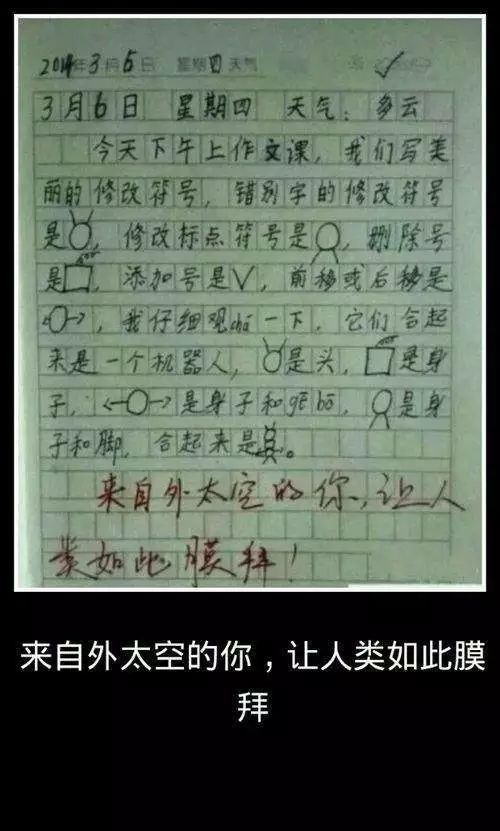 2014年3月6日 星期四 天气
3月6日 星期四 天气：多云
今天下午上作文课，我们写美
丽的修改符号，错别字的修改符号
是，修改标点符号是，删除号
是，添加号是V，前移或后移是
，我仔细观chá一下，它们合起
来是一个机器人，是头，是身
子，是身子和gēbō，是身
子和脚，合起来是。
来自外太空的你，让人
类如此膜拜！
来自外太空的你，让人类如此膜
拜